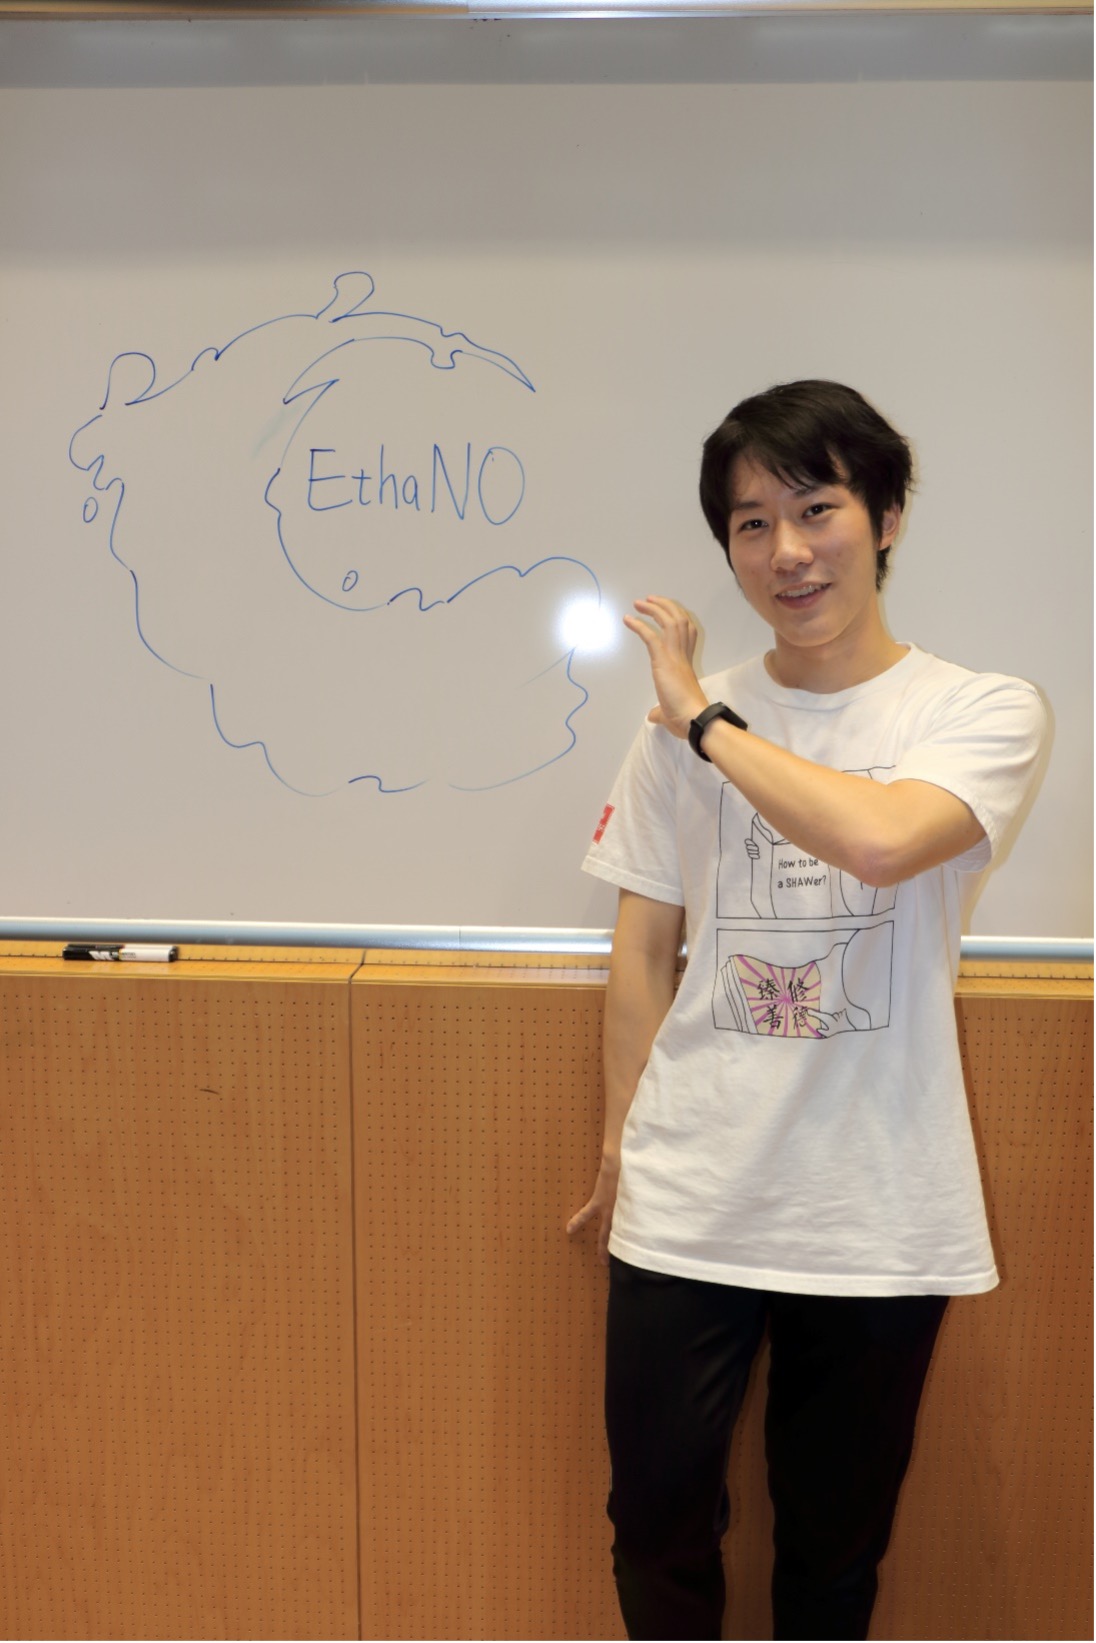 EthaNO
How to be
a SHAWer?
修德
臻善